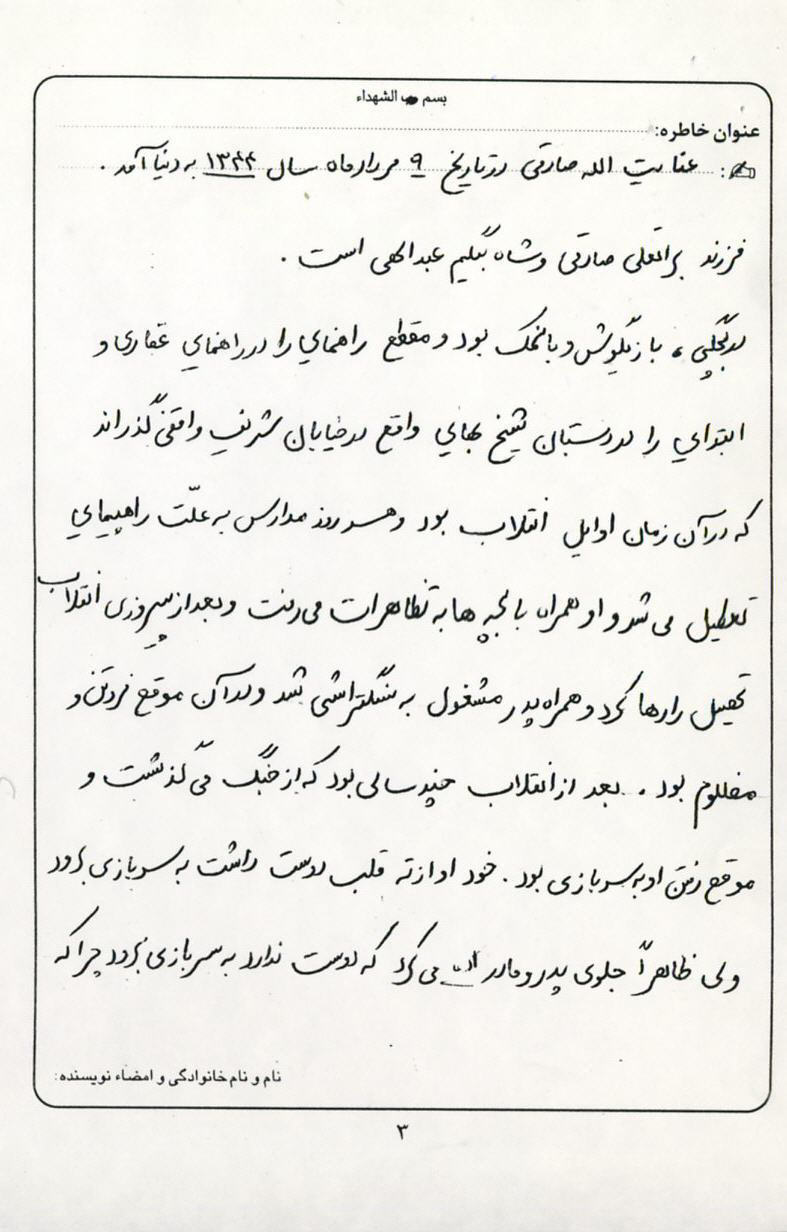 بسم رب الشهداء
عنوان خاطره:
عنایت الله صادقی در تاریخ ۹ مرداد ماه سال ۱۳۴۴ به دنیا آمد.
فرزند براتعلی صادقی و شاه بگیم عبدالهی است.
در بچگی، بازیگوش و با نمک بود و مقطع راهنمایی را در راهنمایی غفاری و
ابتدایی را در دبستان شیخ بهایی واقع در خیابان شریف واقفی گذراند
که در آن زمان اوایل انقلاب بود و هر روز مدارس به علّت راهپیمایی
تعطیل می شد و او همراه با بچه ها به تظاهرات می رفت و بعد از پیروزی انقلاب
تحصیل را رها کرد و همراه پدر مشغول به سنگتراشی شد و در آن موقع فروتن و
مظلوم بود. بعد از انقلاب چند سالی بود که از جنگ می گذشت و
موقع رفتن او به سربازی بود. خود او از ته قلب دوست داشت به سربازی برود
ولی ظاهراً جلوی پدر و مادر می کرد که دوست ندارد به سربازی برود چرا که
نام و نام خانوادگی و امضاء نویسنده:
۳